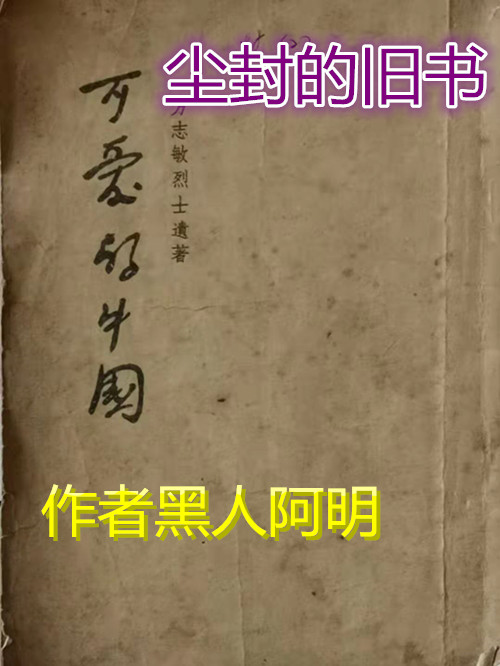 尘封的旧书
可愛的中國
方志敏烈士遺著
作者黑人阿明